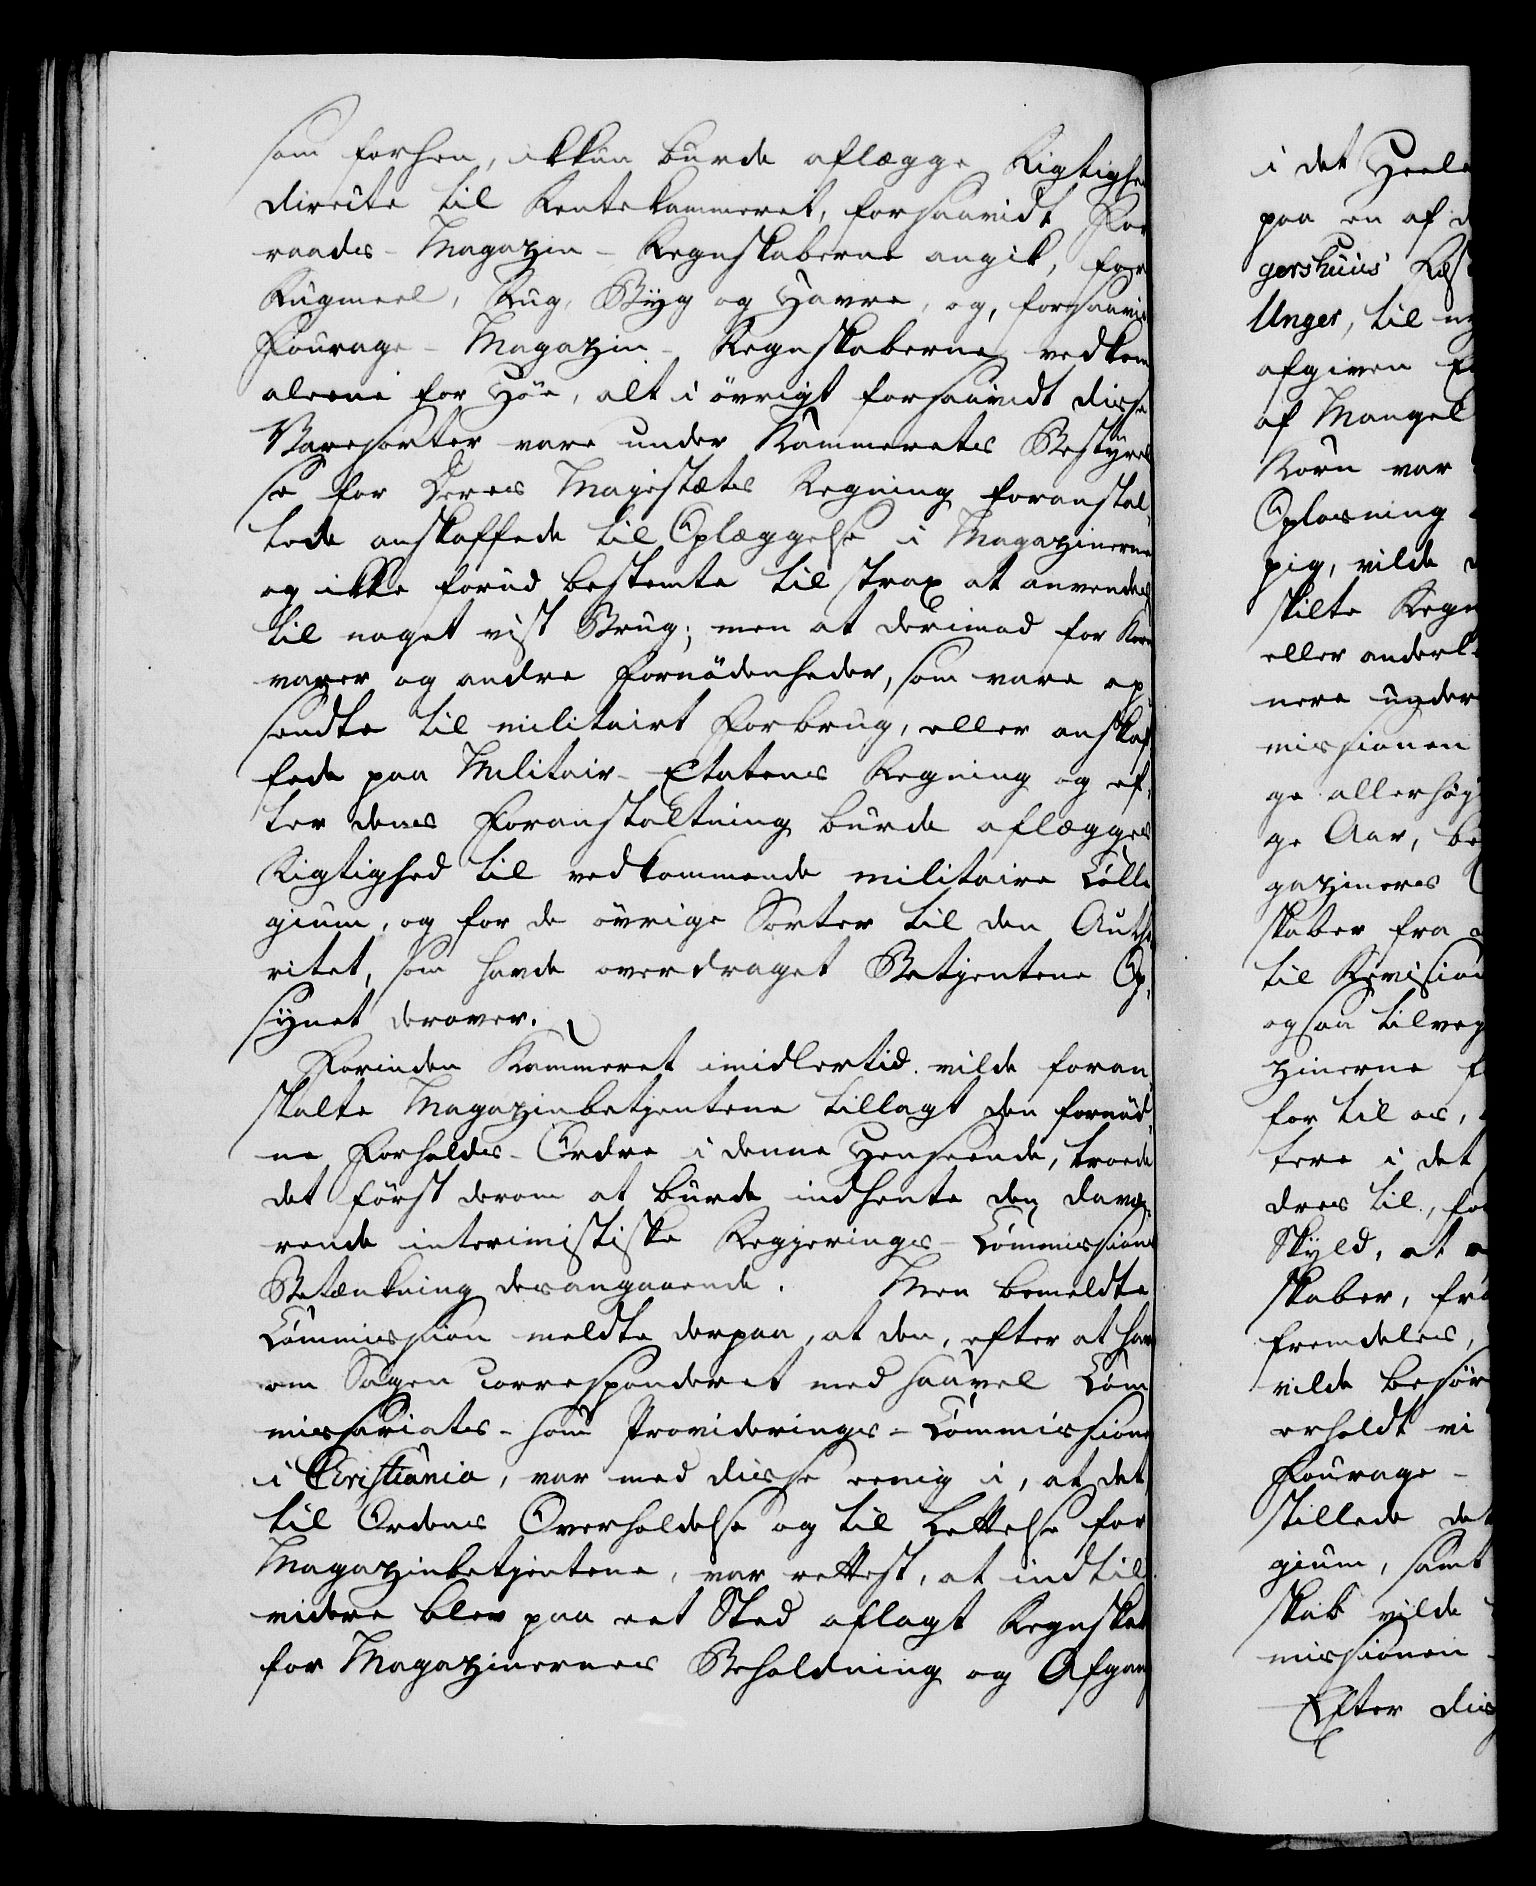 som forhen, ikkun burde aflægge Rigtighed
directe til Rentekammeret, forsaavidt For
raads-Magazin-Regnskaberne angik, for
Rugmeel, Rug, Byg og Havre, og, forsaavidt
Fourage-Magazin-Regnskaberne vedkom
alene for Höe, alt i övrigt forsaavidt disse
Varesorter vare under Kammerets Bestyrel
se for Deres Majestæts Regning foranstal-
tede anskaffede til Oplæggelse i Magazinerne
og ikke forud bestemte til strax at anvendes
til noget vist Brug; men at derimod for Korn
varer og andre Fornödenheder, som vare op-
sendte til militairt Forbrug, eller anskaf
fede paa Militair-Etatens Regning og ef-
ter dens Foranstaltning burde aflægges
Rigtighed til vedkommende militaire Colle
gium, og for de övrige Sorter til den Autho
ritet, som havde overdraget Betjentene Op-
synet derover.
Forinden Kammeret imidlertid vilde foran-
stalte Magazinbetjentene tillagt den fornöd-
ne Forholds-Ordre i denne Henseende, troede
det först derom at burde indhente den davæ-
rende interimistiske Regjerings-Commissions
Betænkning desangaaende. Men bemeldte
Commission meldte derpaa, at den, efter at have
om Sagen corresponderet med saavel Com
missariats- som Providerings-Commissionen
i Christiania, var med disse eenig i, at det
til Ordens Overholdelse og til Lettelse for
Magazinbetjentene, var rettest, at indtil
videre blev paa eet Sted aflagt Regnskab
for Magazinernes Beholdning og Afgang
i det Heele
paa en af
gershuus
Unger, til
afgiven
af Mangel
Korn var
Oplosning
pig, vilde
skilte Regn
eller anderl
nere under
missionen
ge allerhöj
ge Aar, be
gaziners
skaber fra
til Revision
ogsaa tilveg
zinerne
for til os,
tere i det
dres til, for
Skyld, at
skaber, fra
fremdeles,
vilde besör
erholdt vi
Fourage-
stillede det
gium, samt
skab vilde
missionen
Efter dis